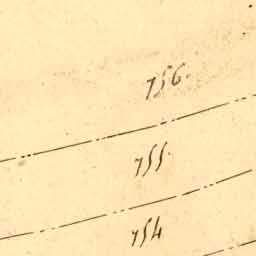 756.
755.
754